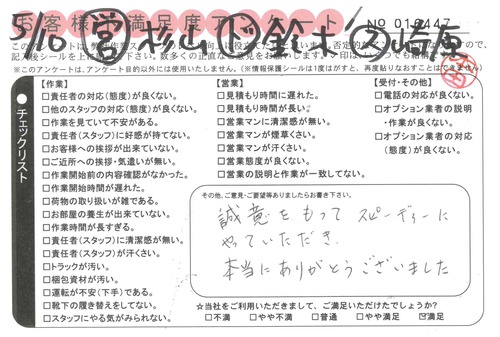 お客様満足度アンケート
No 010447
5/10 営 杉山 ド 鈴木
※このアンケートは、アンケート目的以外には使用いたしません。(※情報保護シールは1度はがすと、再度貼りなおすことはできません)
チェックリスト
【作業】
□責任者の対応(態度)が良くない。
□他のスタッフの対応(態度)が良くない。
□作業を見ていて不安がある。
□責任者(スタッフ)に好感が持てない。
□お客様への挨拶が出来ていない。
□ご近所への挨拶・気遣いが無い。
□作業開始前の内容確認がなかった。
□作業開始時間が遅れた。
□荷物の取り扱いが雑である。
□お部屋の養生が出来ていない。
□作業時間が長すぎる。
□責任者(スタッフ)に清潔感が無い。
□責任者(スタッフ)が汗くさい。
□トラックが汚い。
□梱包資材が汚い。
□運転が不安(下手)である。
□靴下の履き替えをしてない。
□スタッフにやる気がみられない。
【営業】
□見積もり時間に遅れた。
□見積もり時間が長い。
□営業マンに清潔感が無い。
□営業マンが煙草くさい。
□営業マンが汗くさい。
□営業態度が良くない。
□営業の説明と作業が一致してない。
【受付・その他】
□電話の対応が良くない。
□オプション業者の説明
・作業が良くない。
□オプション業者の対応
(態度)が良くない。
その他、ご意見・ご要望等ありましたらお書き下さい。
誠意をもって スピーディーに
やっていただき.
本当にありがとうございました
☆当社をご利用いただきまして、ご満足いただけたでしょうか?
□不満 □やや不満 □普通 □やや満足 ☑満足